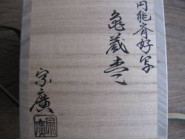 円能斎好写
亀蔵棗
宗廣